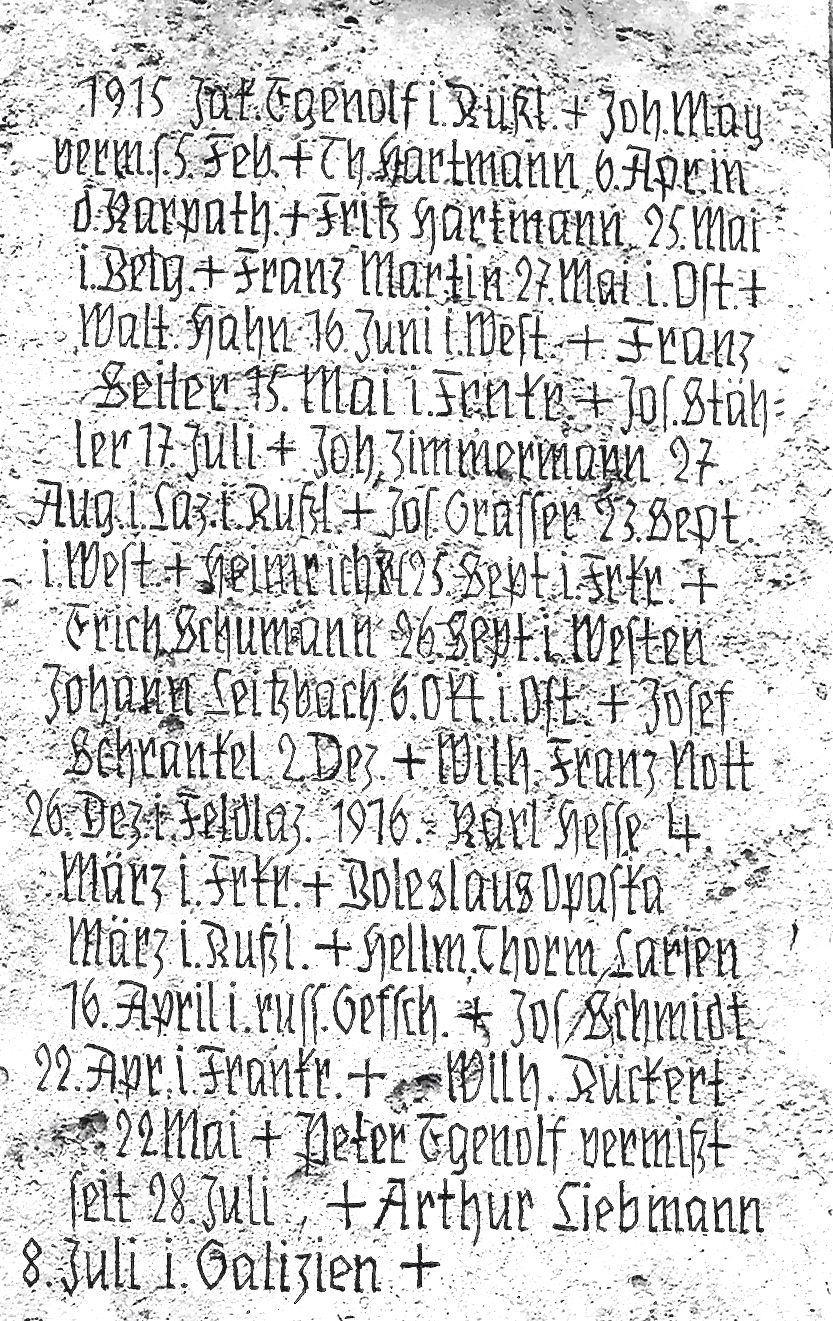 1915 Jak. Egenolf i. Rußl. + Joh. May
verm. s. 5. Feb. + Th. Hartmann 6. Apr. in
d. Karpath. + Fritz Hartmann 25. Mai
i. Belg. + Franz Martin 27. Mai i. Ost. +
Walt. Hahn 16. Juni i. West. + Franz
Seiler 15. Mai i. Frnkr. + Jos. Stäh=
ler 17. Juli + Joh. Zimmermann 27.
Aug. i. Laz. i. Rußl. + Jos. Grasser 23. Sept.
i. West. + Heinrich 25. Sept i. Frkr. +
Erich Schumann 26. Sept. i. Westen
Johann Leitzbach 6. Okt. i. Ost. + Josef
Schrankel 2. Dez. + Wilh. Franz Nott
26. Dez. i. Feldlaz. 1916. Karl Hesse 4.
März i. Frkr. + Boleslaus Opaska
März i. Rußl. + Hellm. Thorm. Larsen
16. April i. russ. Gefsch. + Jos. Schmidt
22. Apr. i. Frankr. + Wilh. Rückert
22 Mai + Peter Egenolf vermißt
seit 28. Juli + Arthur Liebmann
8. Juli i. Galizien +